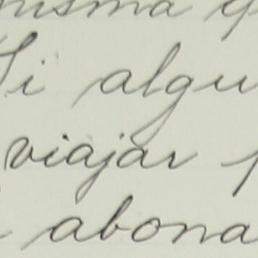 misma q
Si algu
viajar p
abona